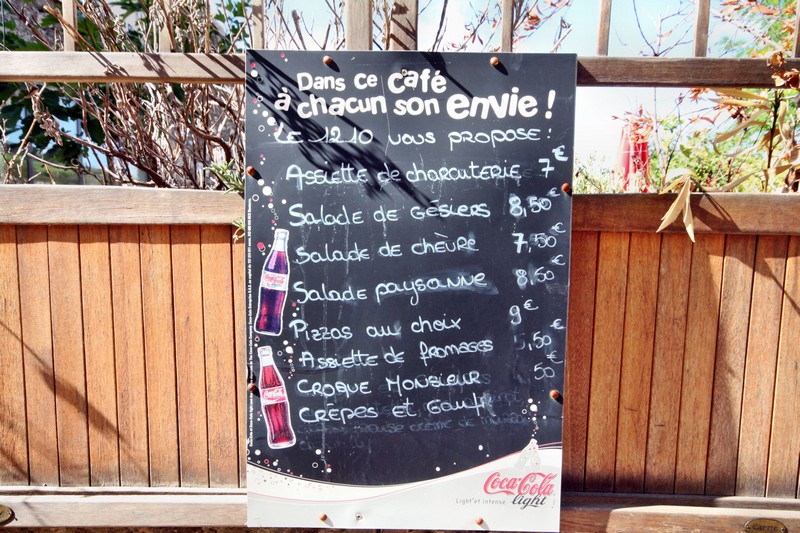 Dans ce café
à chacun son envie !
Le 1210 vous propose :
Assiette de charcuterie 7€
Salade de Gésiers 8,50€
Salade de chèvre 7,50€
Salade paysanne 8,50€
Pizzas au choix 9€
Assiette de fromages 5,50€
Croque Monsieur 50
Crêpes et
Coca-Cola
light
Light et intense